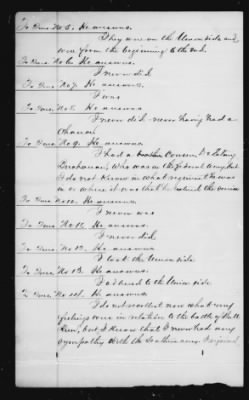 To Ques. No. 5. He answers.
They were on the Union side and
were from the beginning to the end.
To Ques. No. 6. He answers.
I never did.
To Ques. No. 7. He answers.
I was
To Ques. No. 8. He answers
I never did - never having had a
chance.
To Ques. No. 9. He answers.
I had a brother Cousin, De
Buchanan, who was in the
I do not know in what regiment he was
in or where it was that he entered the service
To Ques. No. 10. He answers.
I never was
To Ques. No. 11. He answers.
I never did.
To Ques. No. 12. He answers.
I took the Union side.
To Ques. No. 13. He answers.
I adhered to the Union side.
To Ques. No. 14. He answers.
I do not recollect now what my
feelings were in relation to the battle of Bull
Run, but I know that I never had any
sympathy with the Southerners. I rejoiced